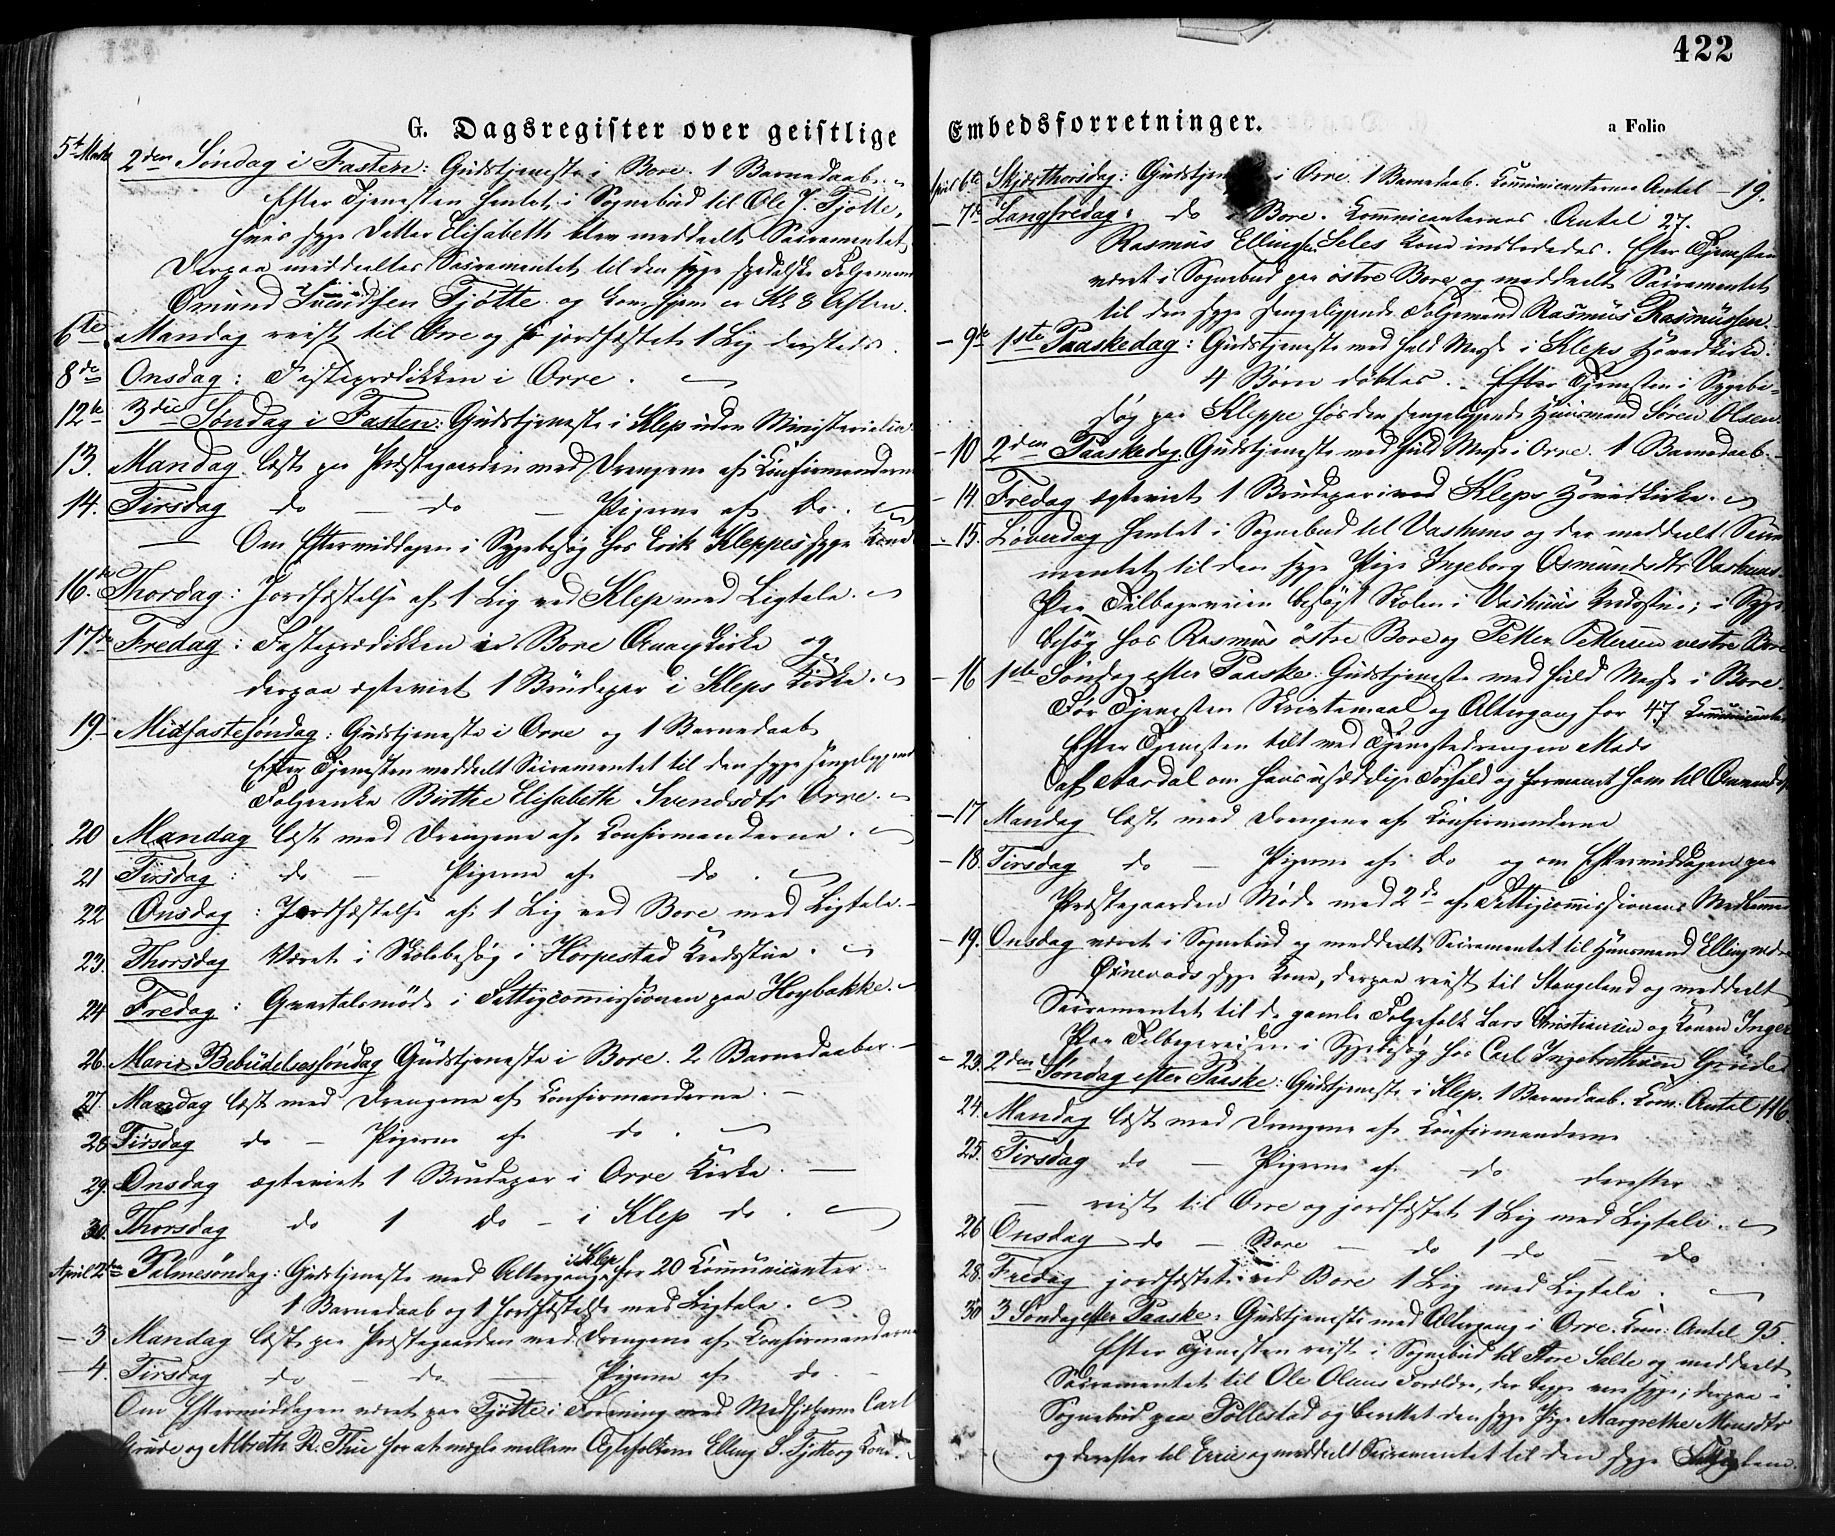 422
G. Dagsregister over geistlige
5te Marts 2den Søndag i Fasten: Gudstjeneste i Bore. 1 Barnedaab.
Efter Tjenesten hentet i Sognebud til Ole J. Tjøtte,
hvis syge Datter Elisabeth blev meddeelt Sacramentet,
Derpaa meddeeltes Sacramentet til den syge spedalske Folgemand
Omund Tjøtte og kom hjem er Kl 8 Aften.
6te Mandag reist til Orre og jordfæstet 1 Lig dersteds.
8de Onsdag: Fasteprædikken i Orre.
12te 3die Søndag i Fasten: Gudstjeneste i Klep uden Ministerialia
13. Mandag læst paa Præstegaarden med Drengene af Confirmanderne
14. Tirsdag do — do — Pigerne af do.
— Om Eftermiddagen i Sygebesøg hos Erik Kleppes syge Kone
16de Thordag: Jordfæstelse af 1 Lig ved Klep med Ligtale.
17de Fredag: Fasteprædikken i Bore Kirke og
derpaa ægteviet 1 Brudepar i Kleps Kirke.
19. Midfastesøndag: Gudstjeneste i Orre og 1 Barnedaab
Efter Tjenesten meddeelt Sacramentet til den syge sengeliggende
Folgeenke Birthe Elisabeth Svendsdtr Orre.
20 Mandag læst med Drengene af Confirmanderne.
21 Tirsdag: do — Pigerne af do.
22 Onsdag: Jordfæstelse af 1 Lig ved Bore med Ligtale.
23. Thorsdag Været i Skolebesøg i Horpestad Kredsstue.
24 Fredag: Qvartalsmøde i Fattigcommissionen paa Høybakke.
26. Mariæ Bebudelsessøndag Gudstjeneste i Bore. 2 Barnedaaber.
27. Mandag læst med Drengene af Confirmanderne.
28 Tirsdag do — Pigerne af do.
29. Onsdag ægteviet 1 Brudepar i Orre Kirke.
30. Thorsdag do 1 do — i Klep do.
April 2den Palmesøndag: Gudstjeneste med Altergang i Klep for 20 Communicanter
1 Barnedaab og 1 Jordfæstelse med Ligtale.
— 3 Mandag læst paa Præstegaarden med Drengene af Confirmanderne
— 4. Tirsdag do — do — Pigerne af do. —
Om Eftermiddagen været paa Tjøtte i Forening med Medhjelperne Carl
Grude og Albreth R. Thie for at mægle mellem Ægtefolkene Elling S. Tjøtte og Kone.
Embedsforretninger.
a Folio
April 6te Skjærthorsdag: Gudstjeneste i Orre. 1 Barnedaab. Communicanternes Antal — 19.
— 7de Langfredag: do i Bore. Communicanternes Antal 27.
Rasmus Ellingsen Seles Kone indlededes. Efter Tjenesten
været i Sognebud paa østre Bore og meddeelt Sacramentet
til den syge sengeliggende Folgemand Rasmus Rasmussen.
— 9de 1ste Paaskedag: Gudstjeneste med fuld Messe i Kleps Hovedkirke.
4 Børn døbtes. Efter Tjenesten i Sygebe-
søg paa Kleppe hos den sengeliggende Huusmand Søren Olsen.
— 10 2den Paaskedag Gudstjeneste med fuld Messe i Orre. 1 Barnedaab.
— 14. Fredag ægteviet 1 Brudepar i Kleps Hovedkirke.
— 15. Løverdag hentet i Sognebud til Vashuus og der meddeelt Sacra
mentet til den syge Pige Ingeborg Osmundsdtr Vashuus.
Paa Tilbageveien besøgt Skolen i Vashuus Kredsstue; i Syge
besøg hos Rasmus østre Bore og Petter Pettersen vestre Bore
— 16 1ste Søndag efter Paaske. Gudstjeneste med fuld Messe i Bore.
Før Tjenesten Skriftemaal og Altergang for 47 Communicanter
Efter Tjenesten talt med Tjenestedrengen Mads
af Aardal om hans usædelige Forhold og formanet ham til
— 17 Mandag læst med Drengene af Confirmanderne
— 18. Tirsdag do — Pigerne af do og om Eftermiddagen paa
Præstegaarden Møde med 2de af Fattigcommissionens Medlemmer
— 19. Onsdag været i Sognebud og meddeelt Sacramentet til Huusmand Elling
Øxnevads syge Kone, derpaa reist til Stangeland og meddeelt
Sacramentet til de gamle Folgefolk Lars Christiansen og Konen Inger
Paa Tilbageveien i Sygebesøg hos Carl Ingebrethsen Grude
— 23. 2den Søndag efter Paaske: Gudstjeneste i Klep. 1 Barnedaab. Com. Antal 116.
24. Mandag læst med Drengene af Confirmanderne
25. Tirsdag do — Pigerne af do derefter
— reist til Orre og jordfæstet 1 Lig med Ligtale.
26 Onsdag do — Bore — do 1 do — do
28. Fredag jordfæstet ved Bore 1 Lig med Ligtale.
30 3 Søndag efter Paaske. Gudstjeneste med Altergang i Orre. Com: Antal 95.
Efter Tjenesten reist i Sognebud til Store Salte og meddeelt
Sacramentet til Ole Olaus Forældre, der begge vare syge; derpaa i
Sognebud paa Pollestad og berettet den syge Pige Margrethe Monsdtr
og derefter til Erre og meddeelt Sacramentet til den syge